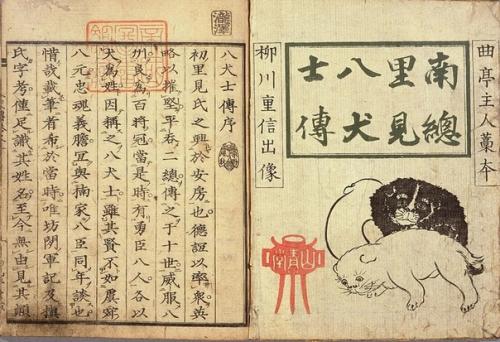 曲亭主人藁本
南總
里見
八犬
士傳
柳川重信出像
山青堂
瀧澤
八犬士傳序
初里見氏之興於安房也。德誼以率衆。英
略以摧堅。平呑二總。傳之于十世。威服八
州。良爲百將冠。當是時。有勇臣八人。各以
犬爲姓。因稱之八犬士。雖其賢不如虞舜
八元。忠魂義膽。宜與楠家八臣同年談也。
惜哉。載筆者希於當時。唯坊閒軍記及槇
氏字考。僅足識其姓名。至今無由見其顚